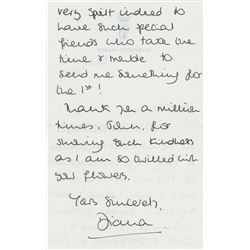 very spoilt indeed to
have such special
friends who take the
time & trouble to
send me something for
the 1st!
Thank you a million
times, John, for
sharing such kindness
as I am so thrilled with
your flowers.
Yours sincerely,
Diana